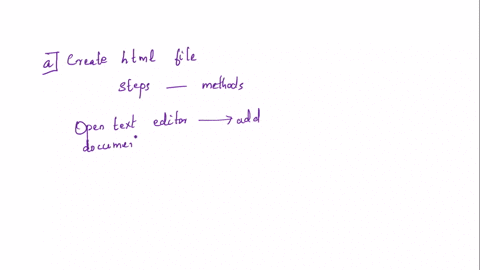 a] Create html file
steps — methods
Open text editor ⟶ add
documen